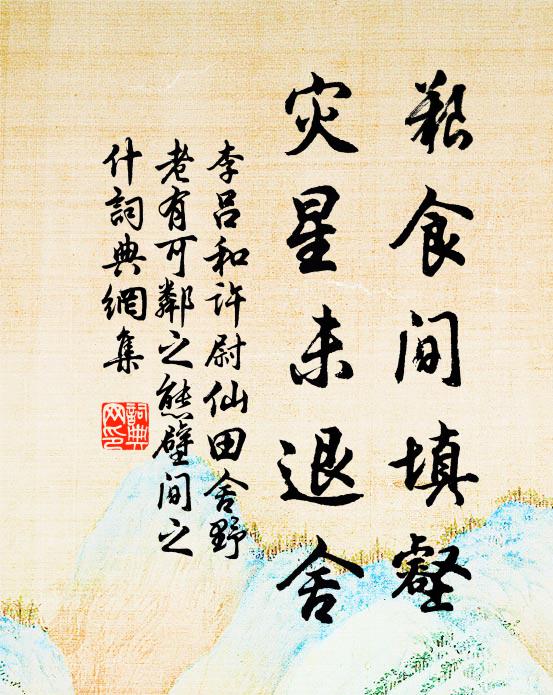 艱食间填壑
灾星未退舍
李呂和許尉仙田舍野
老有可鄰之態壁间之
什詞典網集
詞典
网印